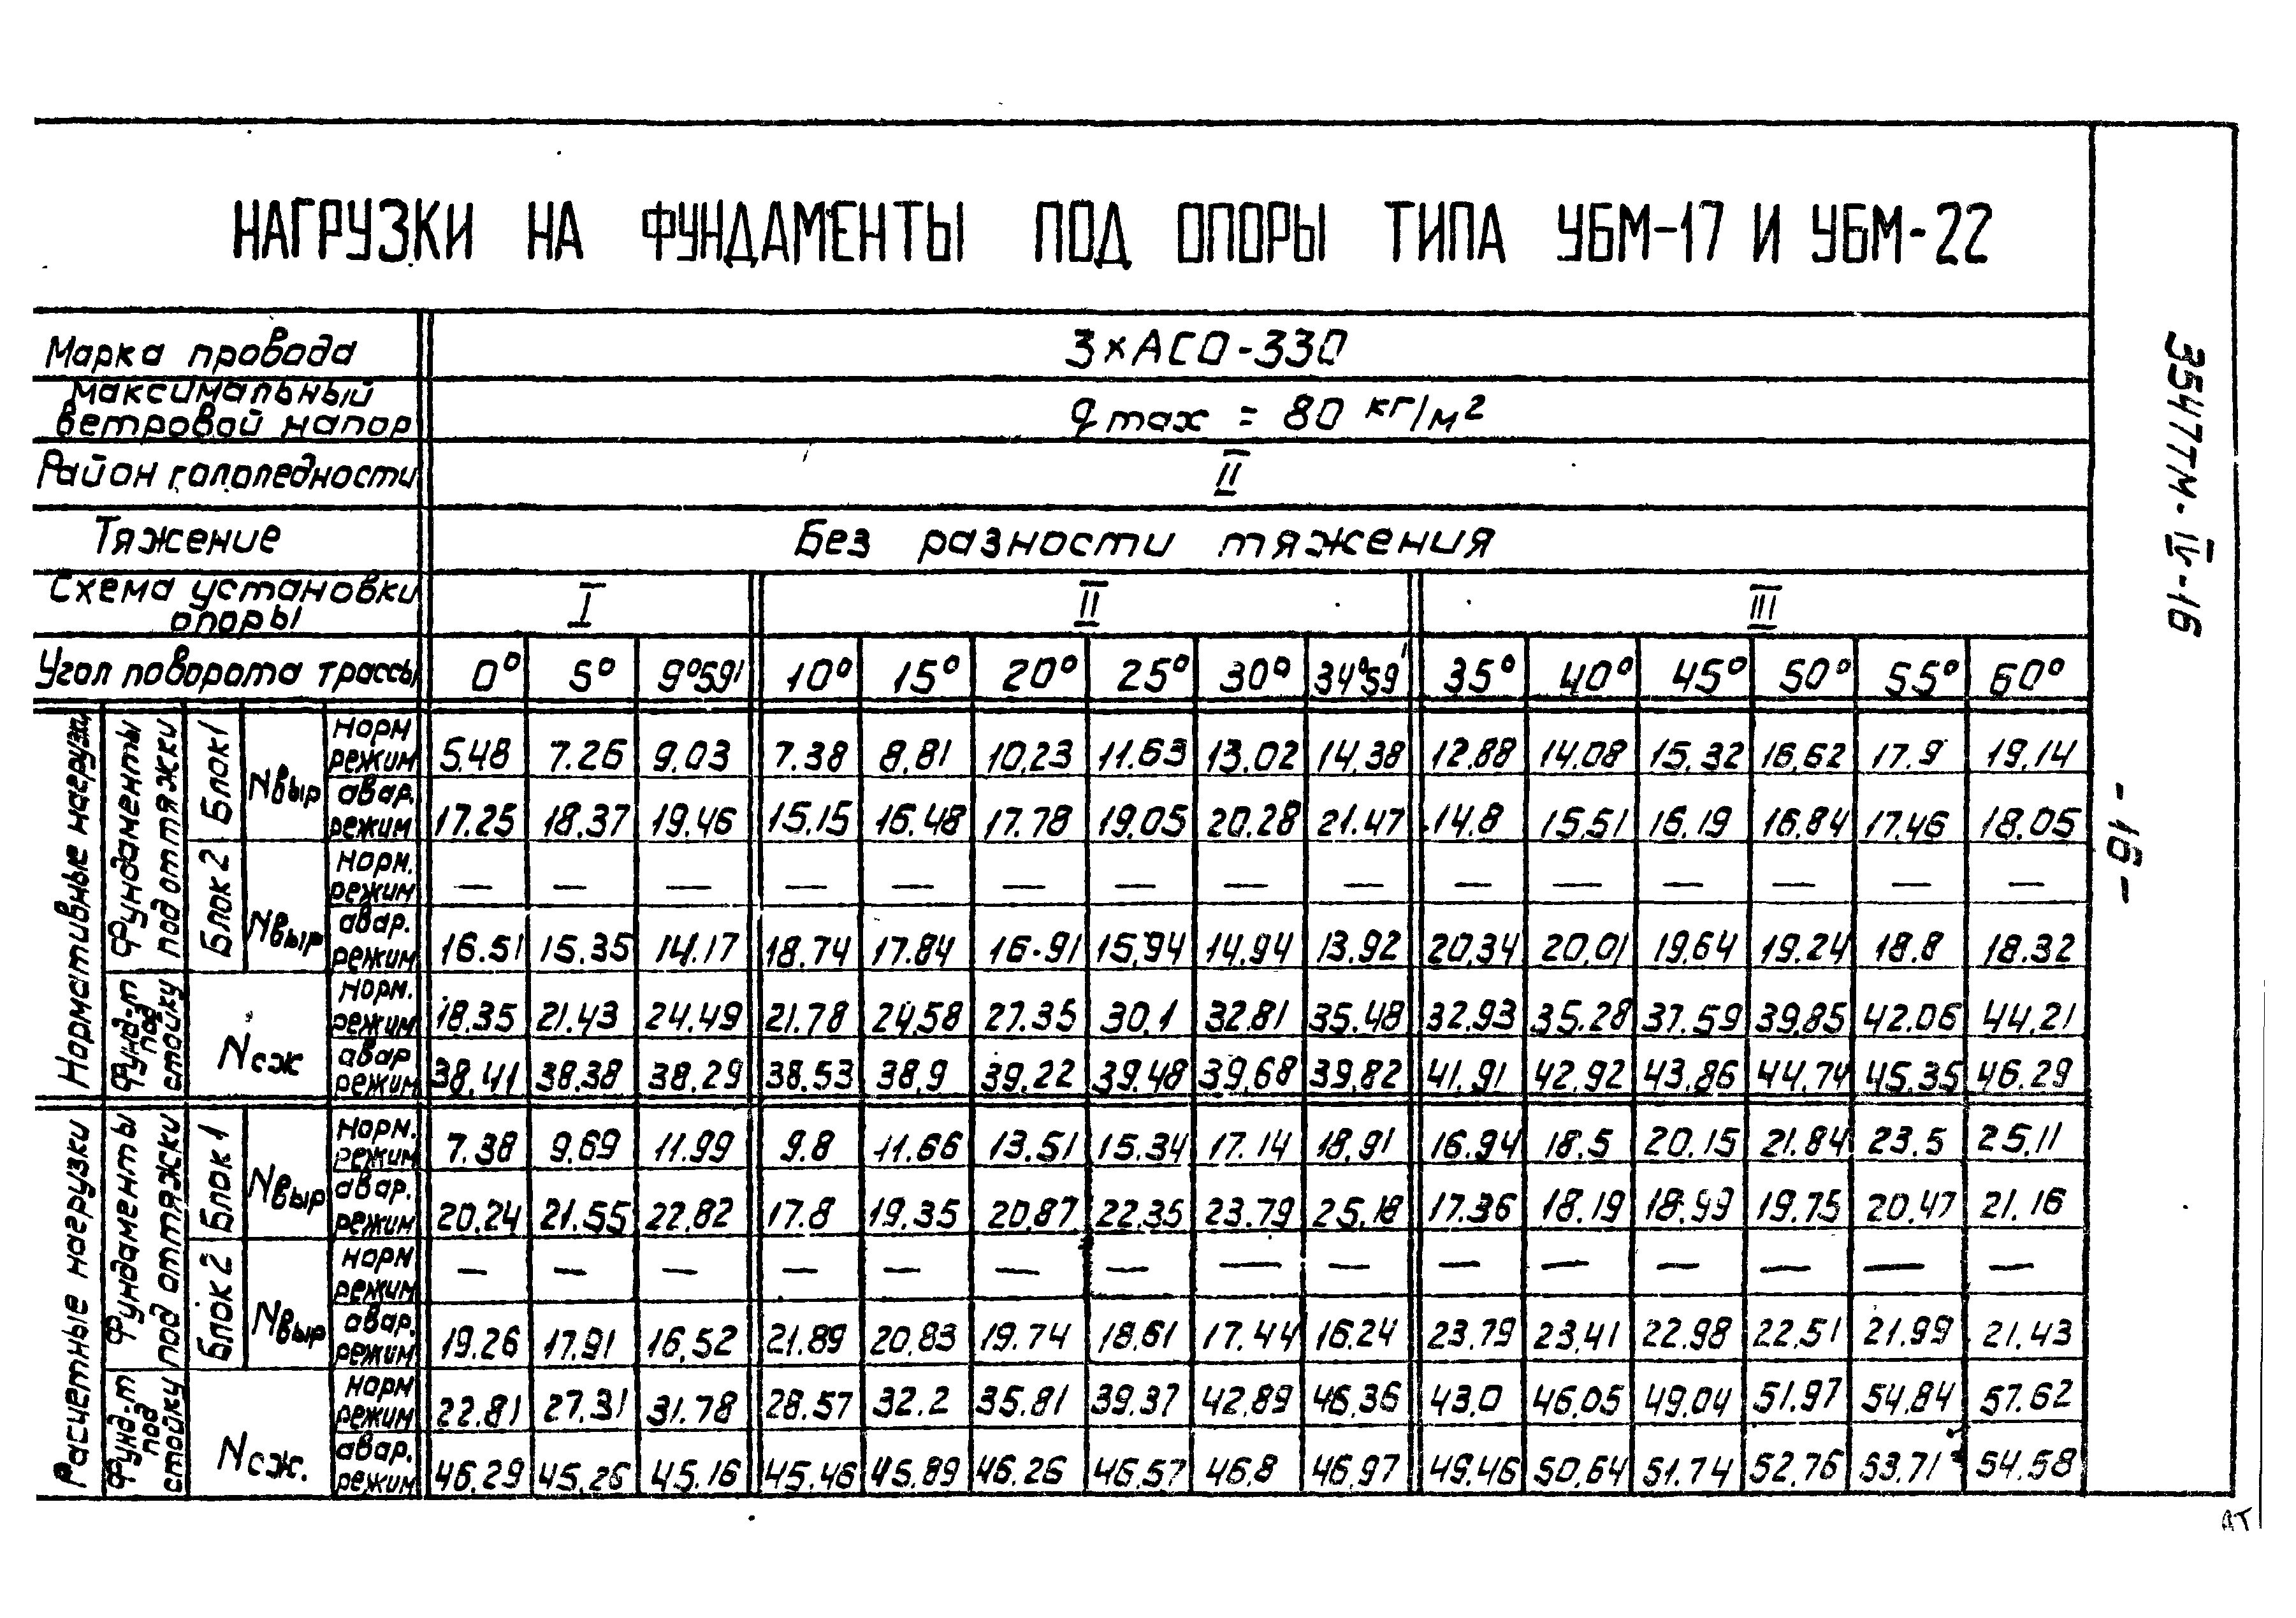 НАГРУЗКИ НА ФУНДАМЕНТЫ ПОД ОПОРЫ ТИПА УБМ-17 И УБМ-22
Марка провода 3×АСО-330
Максимальный
ветровой напор q max = 80 кг/м²
Район гололедности II
Тяжение Без разности тяжения
Схема установки
опоры I II III
Угол поворота трассы 0° 5° 9°59' 10° 15° 20° 25° 30° 34°59' 35° 40° 45° 50° 55° 60°
Нормативные нагрузки
Фундаменты
под оттяжки
Блок 1
Nвыр
Норм
режим 5.48 7.26 9.03 7.38 8.81 10.23 11.63 13.02 14.38 12.88 14.08 15.32 16.62 17.9 19.14
авар.
режим 17.25 18.37 19.46 15.15 16.48 17.78 19.05 20.28 21.47 14.8 15.51 16.19 16.84 17.46 18.05
Блок 2
Nвыр
Норм.
режим — — — — — — — — — — — — — — —
авар.
режим 16.51 15.35 14.17 18.74 17.84 16.91 15.94 14.94 13.92 20.34 20.01 19.64 19.24 18.8 18.32
Фунд-т
под
стойку
Nсж
Норм.
режим 18.35 21.43 24.49 21.78 24.58 27.35 30.1 32.81 35.48 32.93 35.28 37.59 39.85 42.06 44.21
авар
режим 38.41 38.38 38.29 38.53 38.9 39.22 39.48 39.68 39.82 41.91 42.92 43.86 44.74 45.35 46.29
Расчетные нагрузки
Фундаменты
под оттяжки
Блок 1
Nвыр
Норм.
режим 7.38 9.69 11.99 9.8 11.66 13.51 15.34 17.14 18.91 16.94 18.5 20.15 21.84 23.5 25.11
авар.
режим 20.24 21.55 22.82 17.8 19.35 20.87 22.35 23.79 25.18 17.36 18.19 18.99 19.75 20.47 21.16
Блок 2
Nвыр
норм
режим — — — — — — — — — — — — — — —
авар.
режим 19.26 17.91 16.52 21.89 20.83 19.74 18.61 17.44 16.24 23.79 23.41 22.98 22.51 21.99 21.43
Фунд-т
под
стойку
Nсж.
норм
режим 22.81 27.31 31.78 28.57 32.2 35.81 39.37 42.89 46.36 43.0 46.05 49.04 51.97 54.84 57.62
авар.
режим 46.29 45.26 45.16 45.46 45.89 46.26 46.57 46.8 46.97 49.46 50.64 51.74 52.76 53.71 54.58
3547тм-IV-16
-16-
АТ